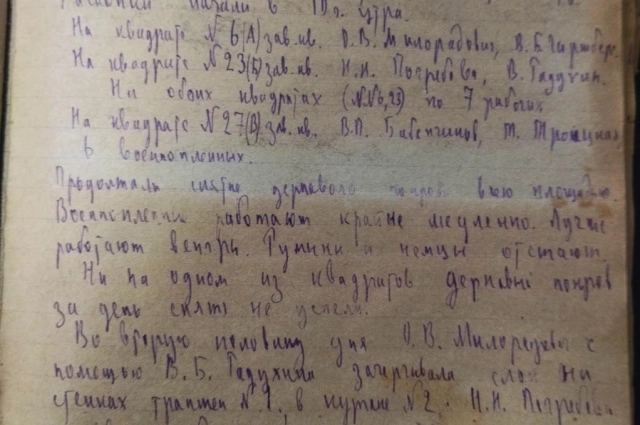 начали в 10 ч. утра.
На квадрате № 6(А) зав. кв. О.В. Милорадович, В.Б. Гиршберг.
На квадрате № 23(Б) зав. кв. Н.Н. Погребова, В. Гадухин.
На обоих квадратах (№№6,23) по 7 рабочих
На квадрате № 27(В) зав. кв. В.П. Бабенчиков, Т. Троицкая,
военнопленных.
Продолжали снятие дернового покрова всю площадь.
Военнопленные работают крайне медленно. Лучше
работают венгры. Румыны и немцы отстают.
Ни на одном из квадратов дерновый покров
за день снять не успели.
Во вторую половину дня О.В. Милорадович с
помощью В.Б. Гадухина зачерчивала слои на
стенках траншеи №1 в кургане №2. Н.Н. Погребова